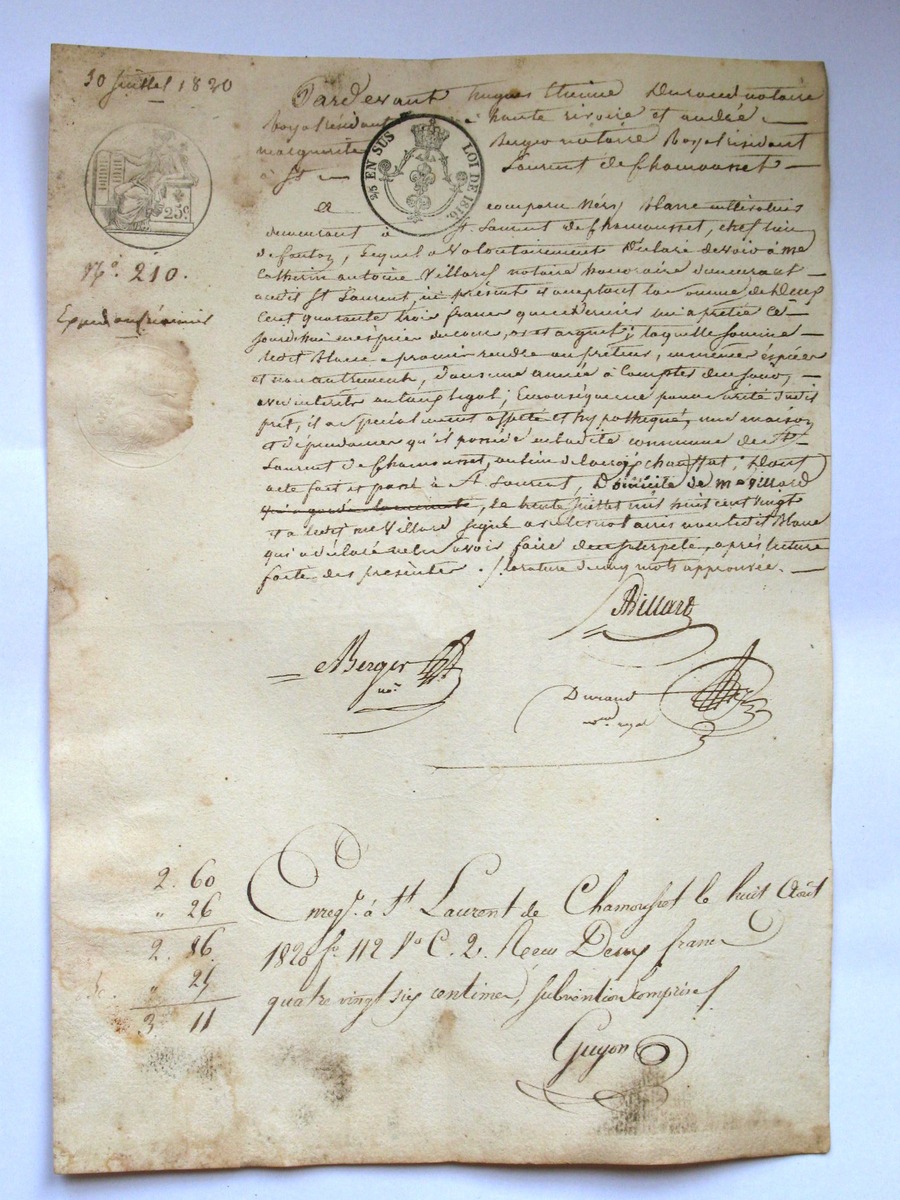 30 juillet 1820
25c
N.o 210.
25 EN SUS
LOI DE 1816
Pardevant hugues Etienne Durand notaire
Royal résidant à haute rivoire et andré
marguerite Berger notaire Royal résidant
à St Laurent de Chamousset
comparu Blanc
demeurant à St. Laurent de Chamousset, chef lieu
de Canton, Lequel a volontairement déclaré devoir à me
Catherin antoine Villard notaire honoraire demeurant
audit St Laurent, ici présent et acceptant la somme de Deux
Cent quarante trois francs que ce dernier lui a prêtée Ce
jourd'hui en espèces de cours, or et argent; laquelle somme
ledit Blanc a promis rendre au prêteur, en même espèces
et non autrement, dans une année à Compter de ce jour,
avec intérêts au taux légal; En conséquence pour sureté dudit
prêt, il a spécialement affecté et hypothéqué, une maison
et dépendances qu'il possède en ladite commune de St
Laurent de Chamousset, au lieu de Dont
acte fait et passé à St Laurent, Domicile de me Villard
qui garde la minute, Le trente juillet mil huit cent vingt
et a ledit me Villard signé avec les notaires non ledit Blanc
qui a déclaré ne le savoir faire de ce interpelé, après lecture
faite des présentes. / la rature de cinq mots approuvée.
Villard
Berger
nre
Durand
nre royal
2. 60
" 26
2. 86
" 25
3 11
Enregé. à St Laurent de Chamousset le huit Août
1820 fo 112 Vo C. 2. Reçu Deux francs
quatre vingt six centimes, subvention comprise
Guyon